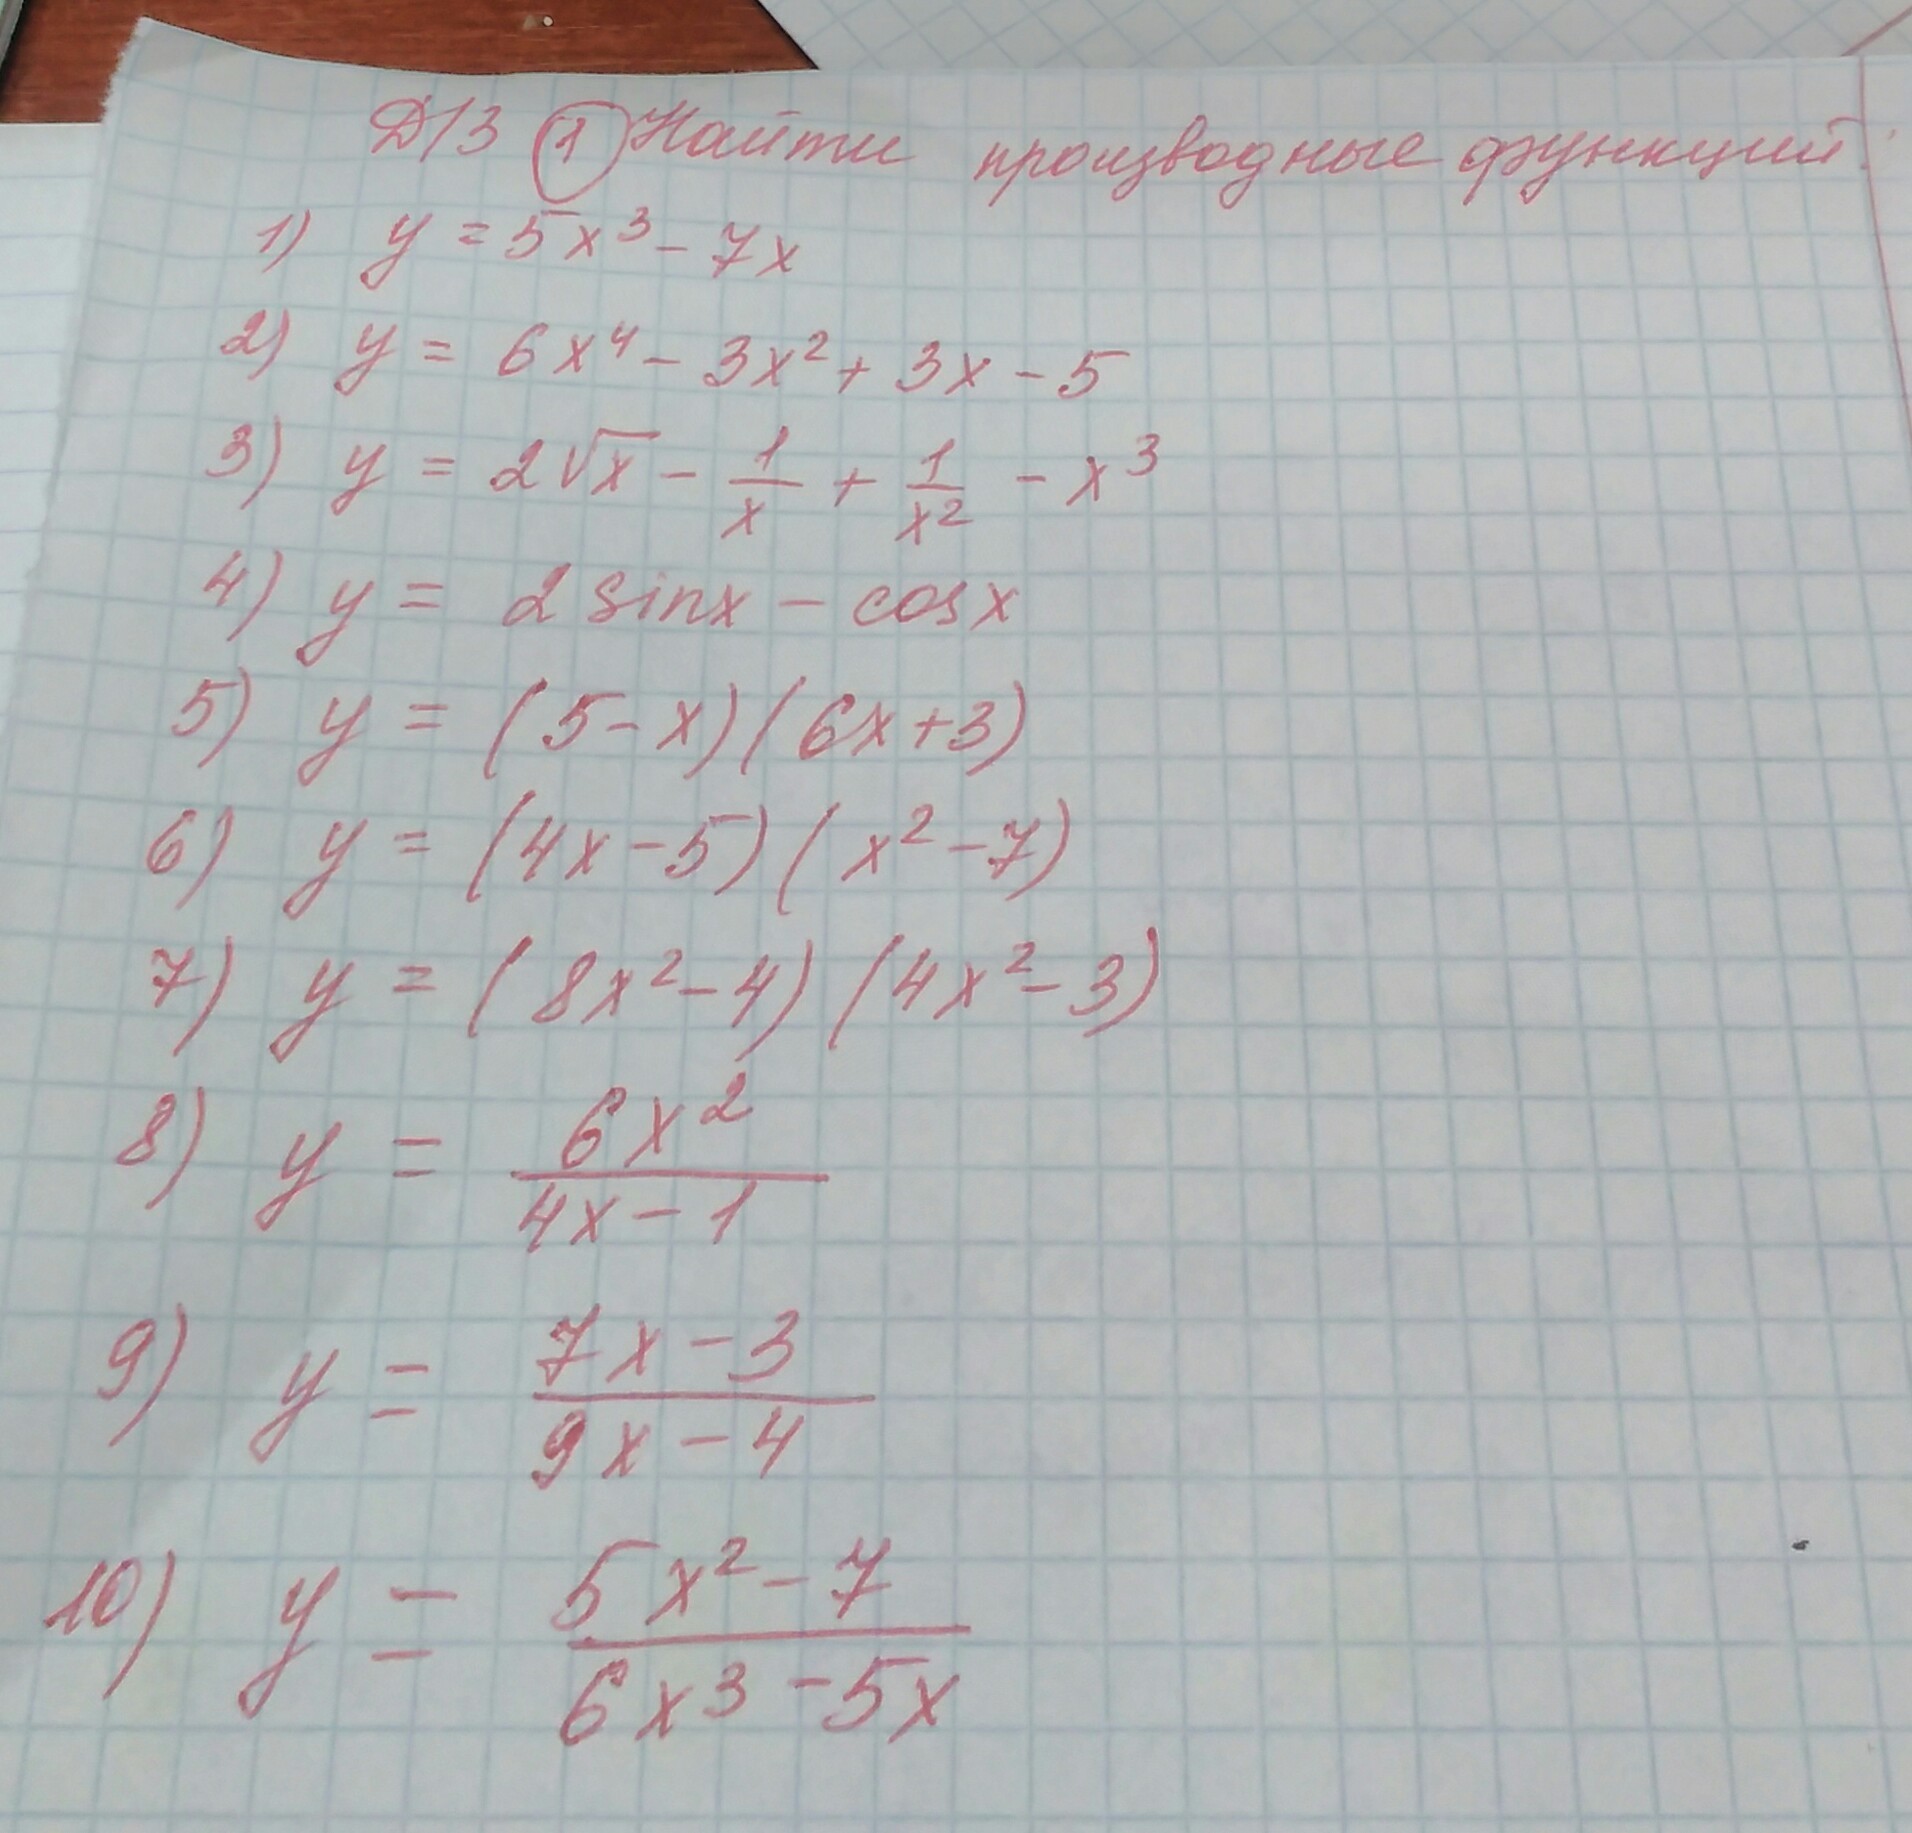 Д/З ① Найти производные функций:
1) y = 5x³ - 7x
2) y = 6x⁴ - 3x² + 3x - 5
3) y = 2√x - 1/x + 1/x² - x³
4) y = 2 sinx - cosx
5) y = (5 - x)(6x + 3)
6) y = (4x - 5)(x² - 7)
7) y = (8x² - 4)(4x² - 3)
8) y = 6x² / 4x - 1
9) y = 7x - 3 / 9x - 4
10) y = 5x² - 7 / 6x³ - 5x